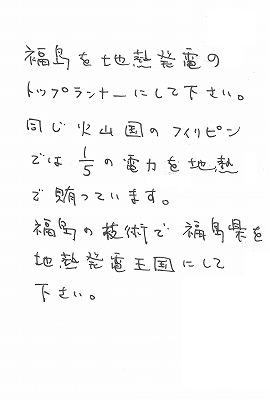 福島を地熱発電の
トップランナーにして下さい。
同じ火山国のフィリピン
では 1/5 の電力を地熱
で賄っています。
福島の技術で福島県を
地熱発電王国にして
下さい。